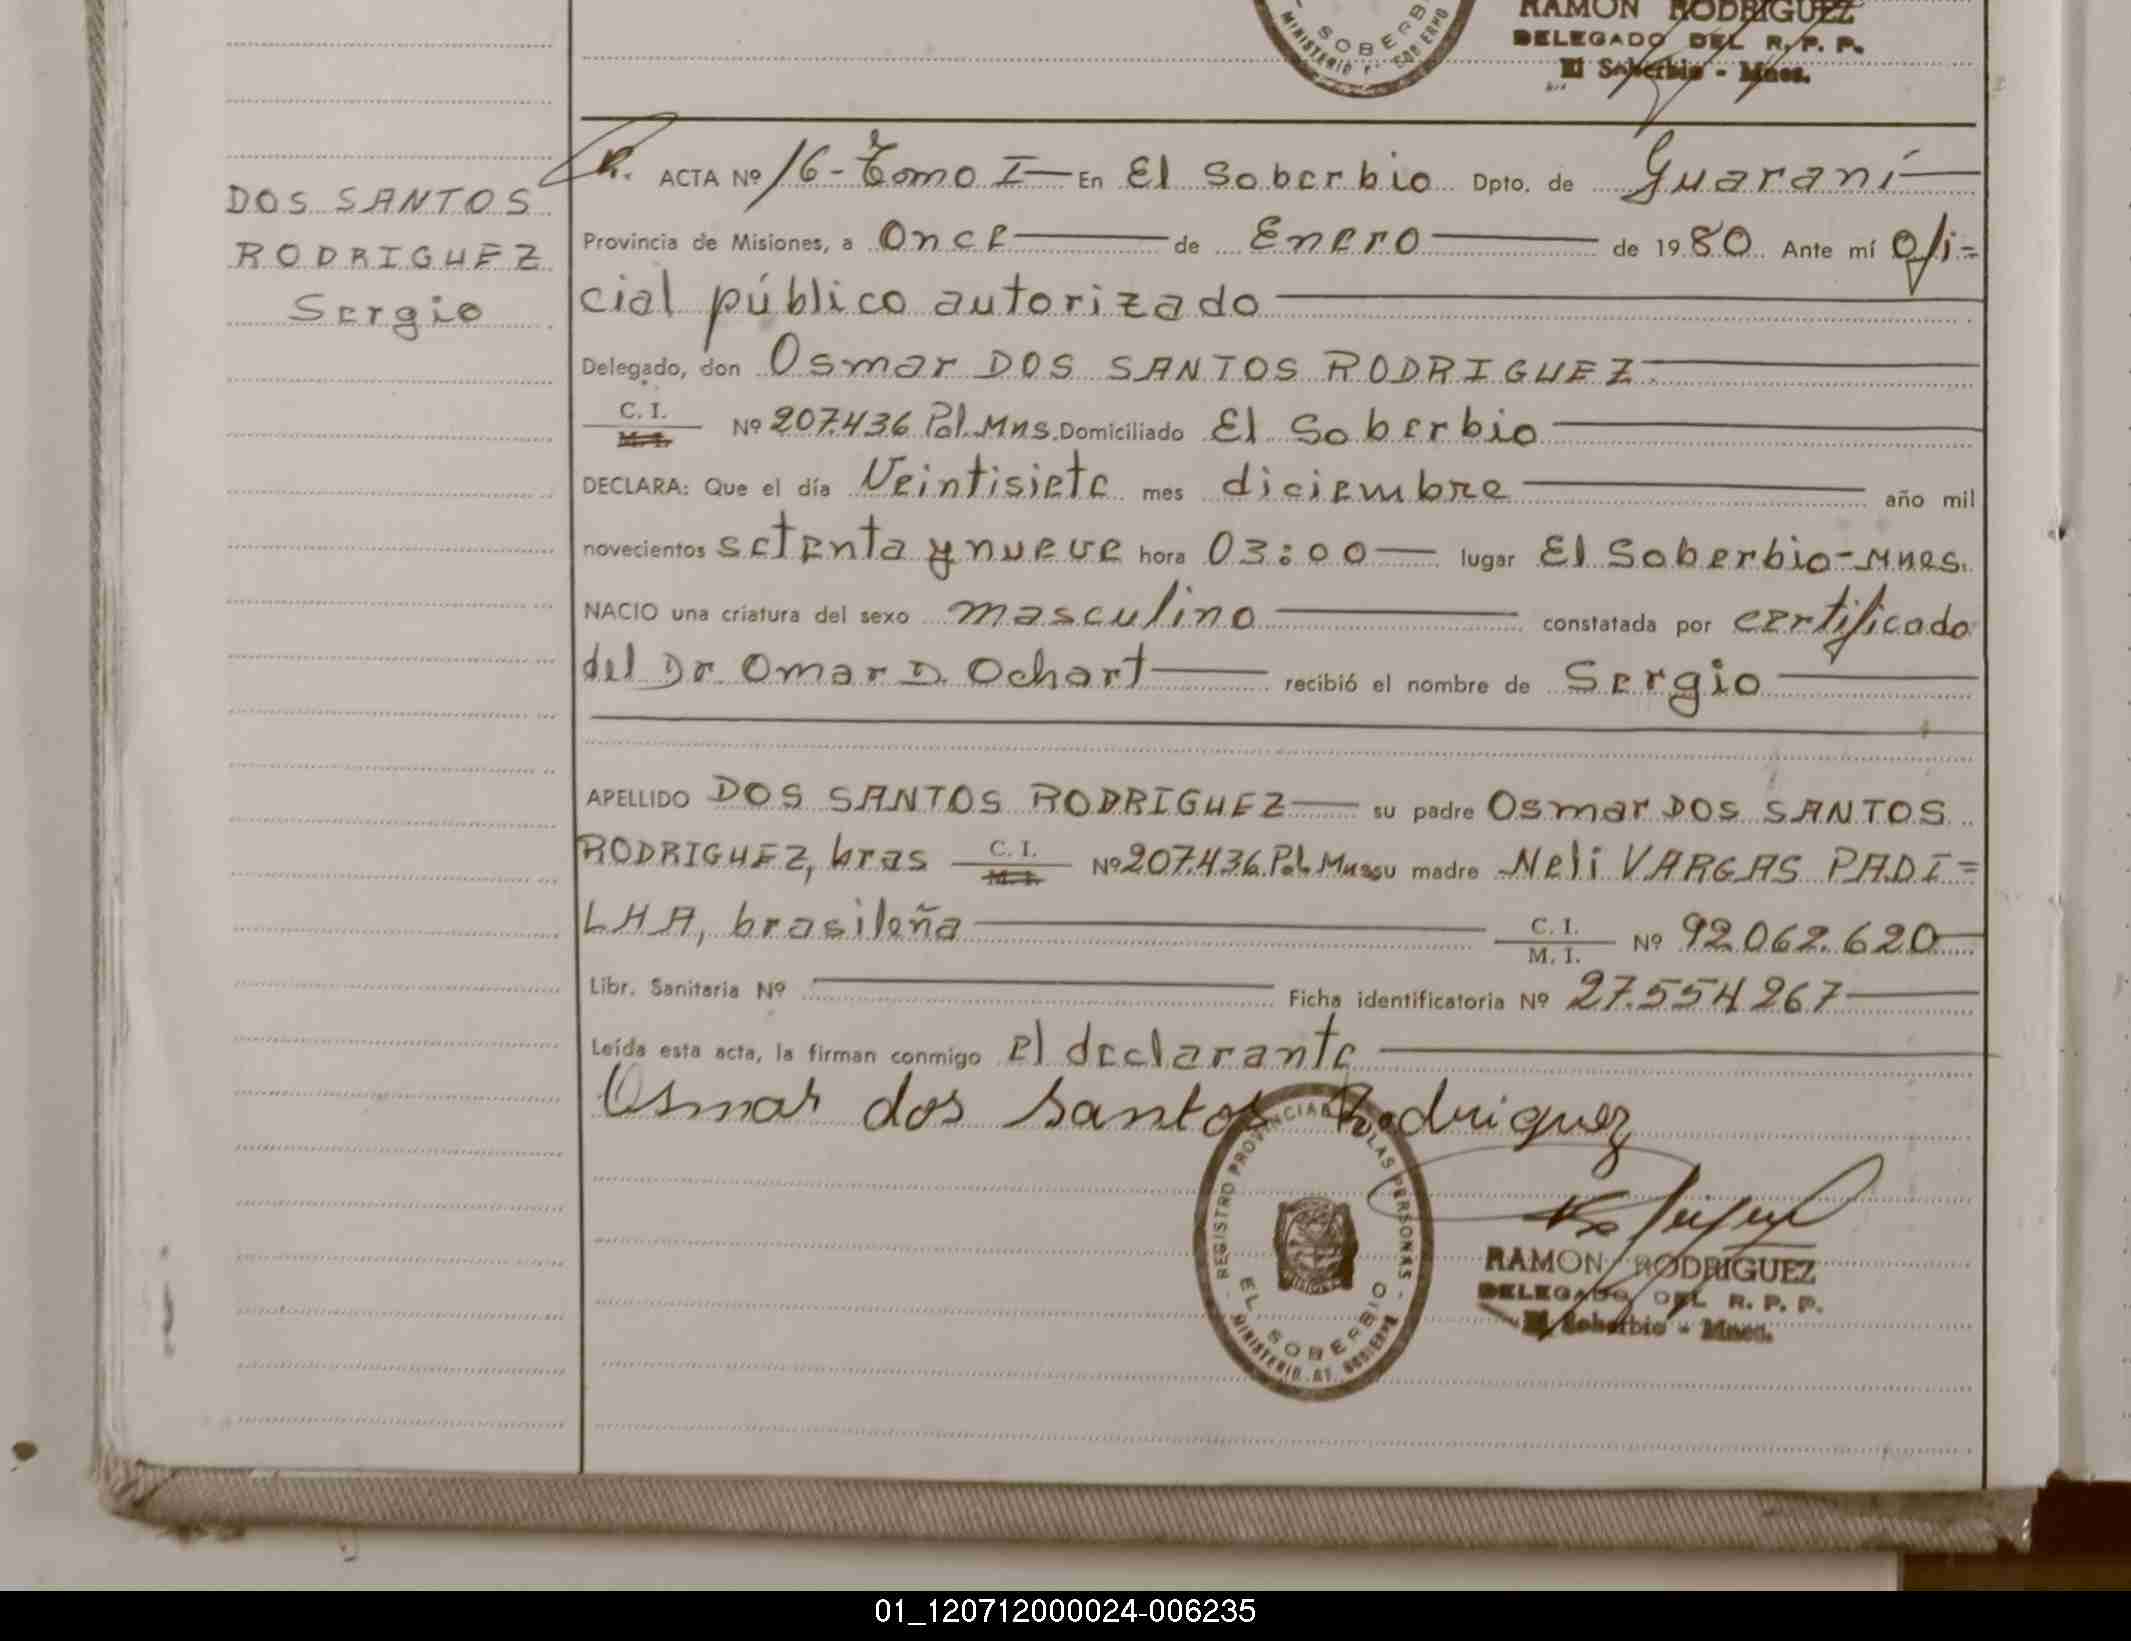 SOBERB
MINISTERIO
RAMON RODRIGUEZ
DELEGADO DEL R. P. P.
El Soberbio - Mnes.
DOS SANTOS
RODRIGUEZ
Sergio
ACTA Nº 16 - Tomo I — En El Soberbio Dpto. de Guaraní
Provincia de Misiones, a Once de Enero de 1980 Ante mí ofi=
cial público autorizado
Delegado, don Osmar DOS SANTOS RODRIGUEZ
C. I.
M. I.
Nº 207.436 Pol. Mns. Domiciliado El Soberbio
DECLARA: Que el día Veintisiete mes diciembre año mil
novecientos setenta y nueve hora 03:00 lugar El Soberbio - Mnes.
NACIO una criatura del sexo masculino constatada por certificado
del Dr Omar D. Ochart recibió el nombre de Sergio
APELLIDO DOS SANTOS RODRIGUEZ su padre Osmar DOS SANTOS
RODRIGUEZ, bras C. I. M. I. Nº 207.436 Pol. Mns su madre Neli VARGAS PADI=
LHA, brasileña C. I. M. I. Nº 92.062.620
Libr. Sanitaria Nº Ficha identificatoria Nº 27.554.267
Leída esta acta, la firman conmigo el declarante
Osmar dos Santos Rodriguez
REGISTRO PROVINCIAL LAS PERSONAS
EL SOBERBIO
MINISTERIO DE GOBIERNO
RAMON RODRIGUEZ
DELEGADO DEL R. P. P.
El Soberbio - Mnes.
01_120712000024-006235